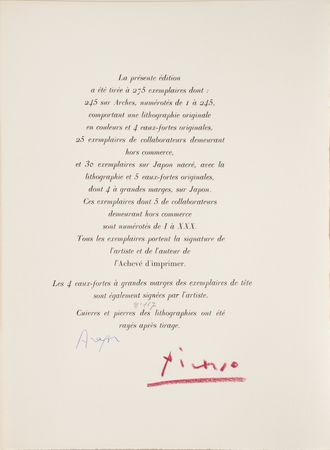 La présente édition
a été tirée à 275 exemplaires dont :
245 sur Arches, numérotés de 1 à 245,
comportant une lithographie originale
en couleurs et 4 eaux-fortes originales,
25 exemplaires de collaborateurs demeurant
hors commerce,
et 30 exemplaires sur Japon nacré, avec la
lithographie et 5 eaux-fortes originales,
dont 4 à grandes marges, sur Japon.
Ces exemplaires dont 5 de collaborateurs
demeurant hors commerce
sont numérotés de I à XXX.
Tous les exemplaires portent la signature de
l'artiste et de l'auteur de
l'Achevé d'imprimer.
Les 4 eaux-fortes à grandes marges des exemplaires de tête
sont également signées par l'artiste.
Cuivres et pierres des lithographies ont été
rayés après tirage.
Aragon
Picasso